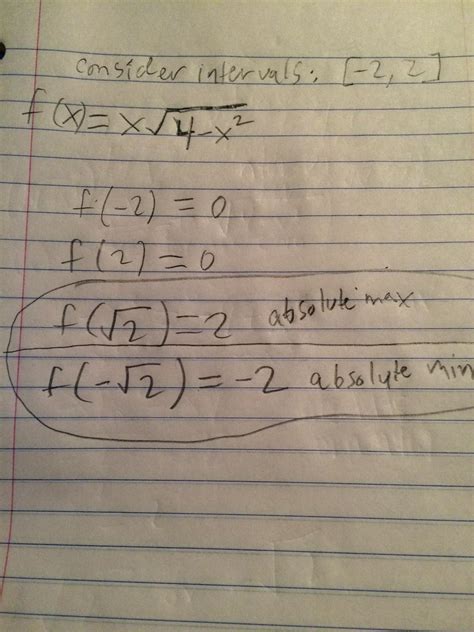 consider intervals: [-2, 2]
f(x) = x√4-x²
f(-2) = 0
f(2) = 0
f(√2) = 2 absolute max
f(-√2) = -2 absolute min